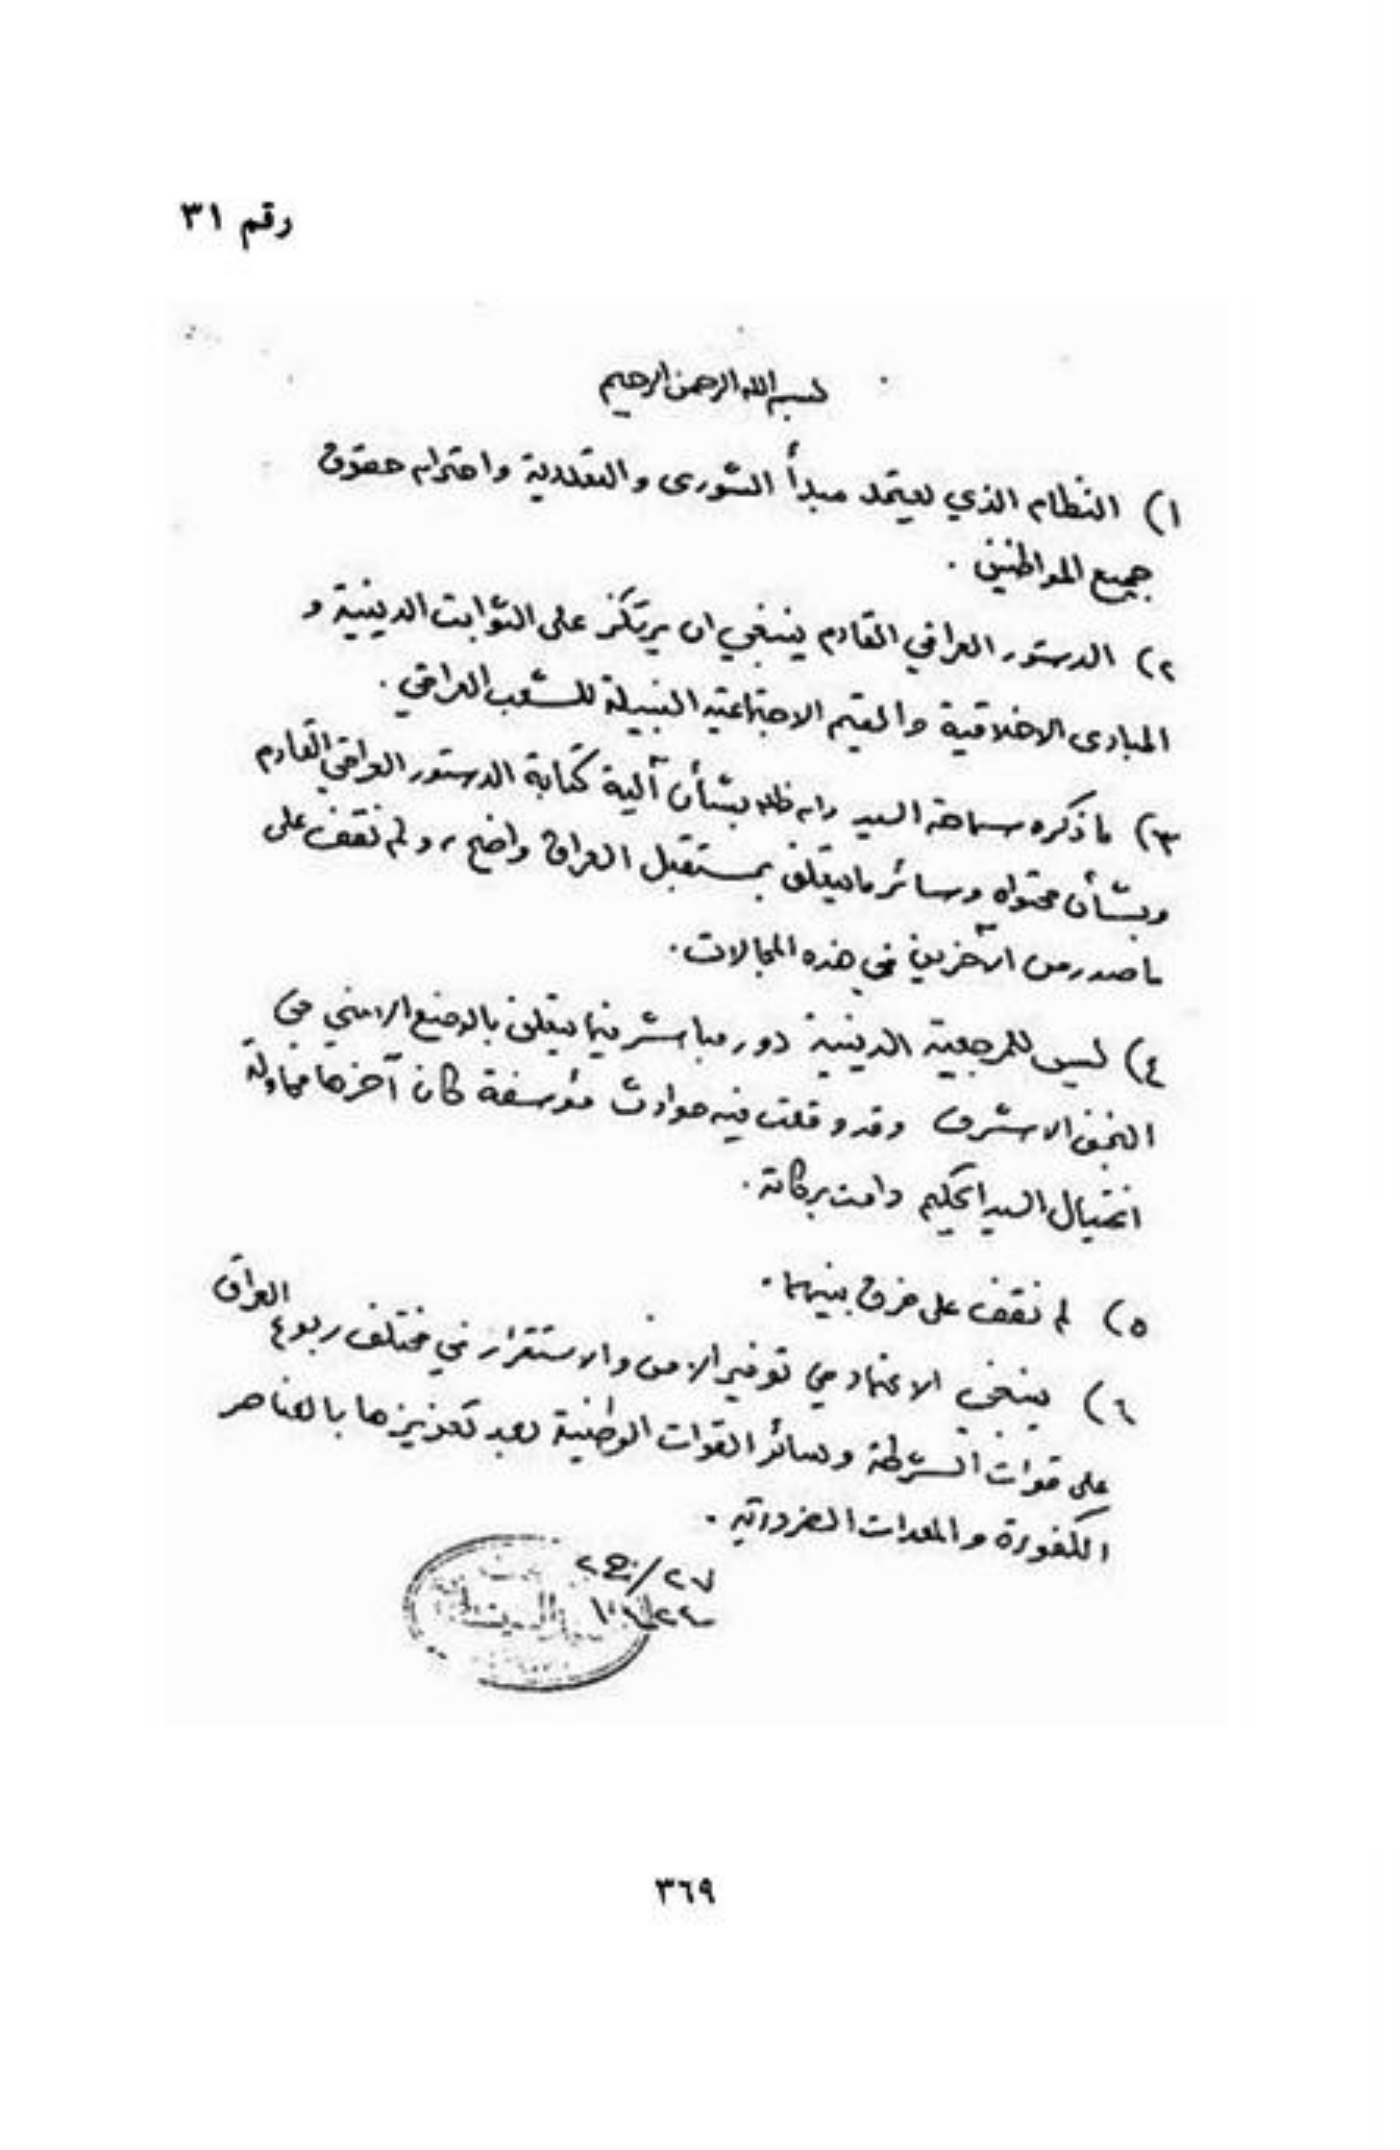 رقم ٣١
بسم الله الرحمن الرحيم
١) النظام الذي يعتمد مبدأ الشورى والتعددية واحترام حقوق
جميع المواطنين .
٢) الدستور العراقي القادم ينبغي ان يرتكز على الثوابت الدينية و
المبادى الاخلاقية والقيم الاجتماعية النبيلة للشعب العراقي .
٣) ما ذكره سماحة السيد دام ظله بشأن آلية كتابة الدستور العراقي القادم
وبشأن محتواه وسائر ما يتعلق بمستقبل العراق واضح ، ولم نقف على
ما صدر من الآخرين في هذه المجالات .
٤) ليس للمرجعية الدينية دور مباشر فيما يتعلق بالوضع الامني في
النجف الاشرف وقد وقعت فيه حوادث مؤسفة كان آخرها محاولة
اغتيال السيد الحكيم دامت بركاته .
٥) لم نقف على فرق بينهما .
٦) ينبغي الاعتماد في توفير الامن والاستقرار في مختلف ربوع العراق
على قوات الشرطة وسائر القوات الوطنية بعد تعزيزها بالعناصر
الكفوءة والمعدات الضرورية .
٢٧/ج٢
٣٦٩